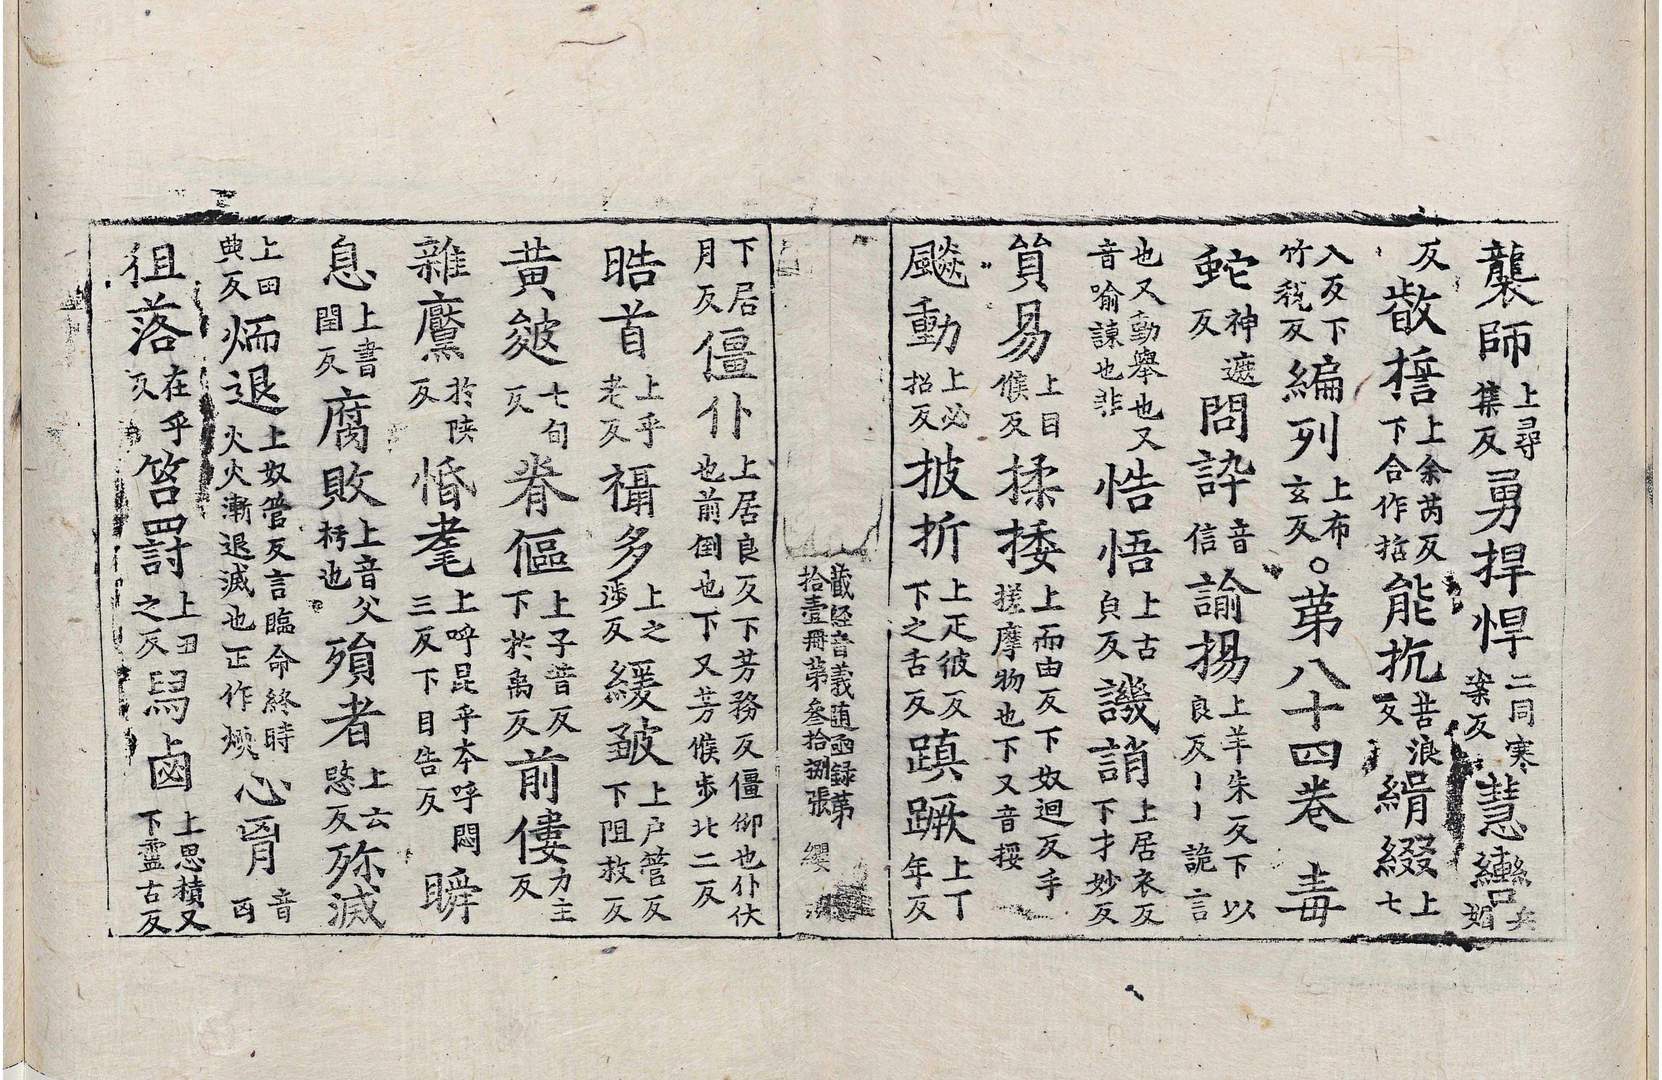 襲師上尋集反勇捍悍二同寒案反慧轡兵媚
反㪚揩上余芮反下合作指能抗苦浪反絹綴上七
入反下竹税反編列上布玄反○第八十四卷 毒
虵神遮反問訡音信諭揚上羊朱反下以良反丨丨詭言
也又動舉也又音喻諫也非悎悟上古貞反譏誚上居衣反下才妙反
貿易上目㑨反揉捼上而由反下奴迴反手搓摩物也下又音挼
飈動上必招反披折上疋彼反下之舌反蹎蹶上丁年反
藏經音義隨函録第拾壹冊第叁拾捌張 纓
下居月反僵仆上居良反下芳務反僵仰也仆伏也前倒也下又芳㑨步北二反
晧首上乎老反襵多上之涉反緩皺上戸管反下阻救反
黄皴七旬反脊傴上子昔反下於禹反前僂力主反
雜黶於陝反惛耄上呼昆乎本呼悶三反下目告反瞬
息上書閏反腐敗上音父朽也殞者上云愍反殄滅
上田典反㶧退上奴管反言臨命終時火火漸退滅也正作煗心胷音㐫
徂落在乎反笞罸上丑之反舄鹵上思積反下靈古反